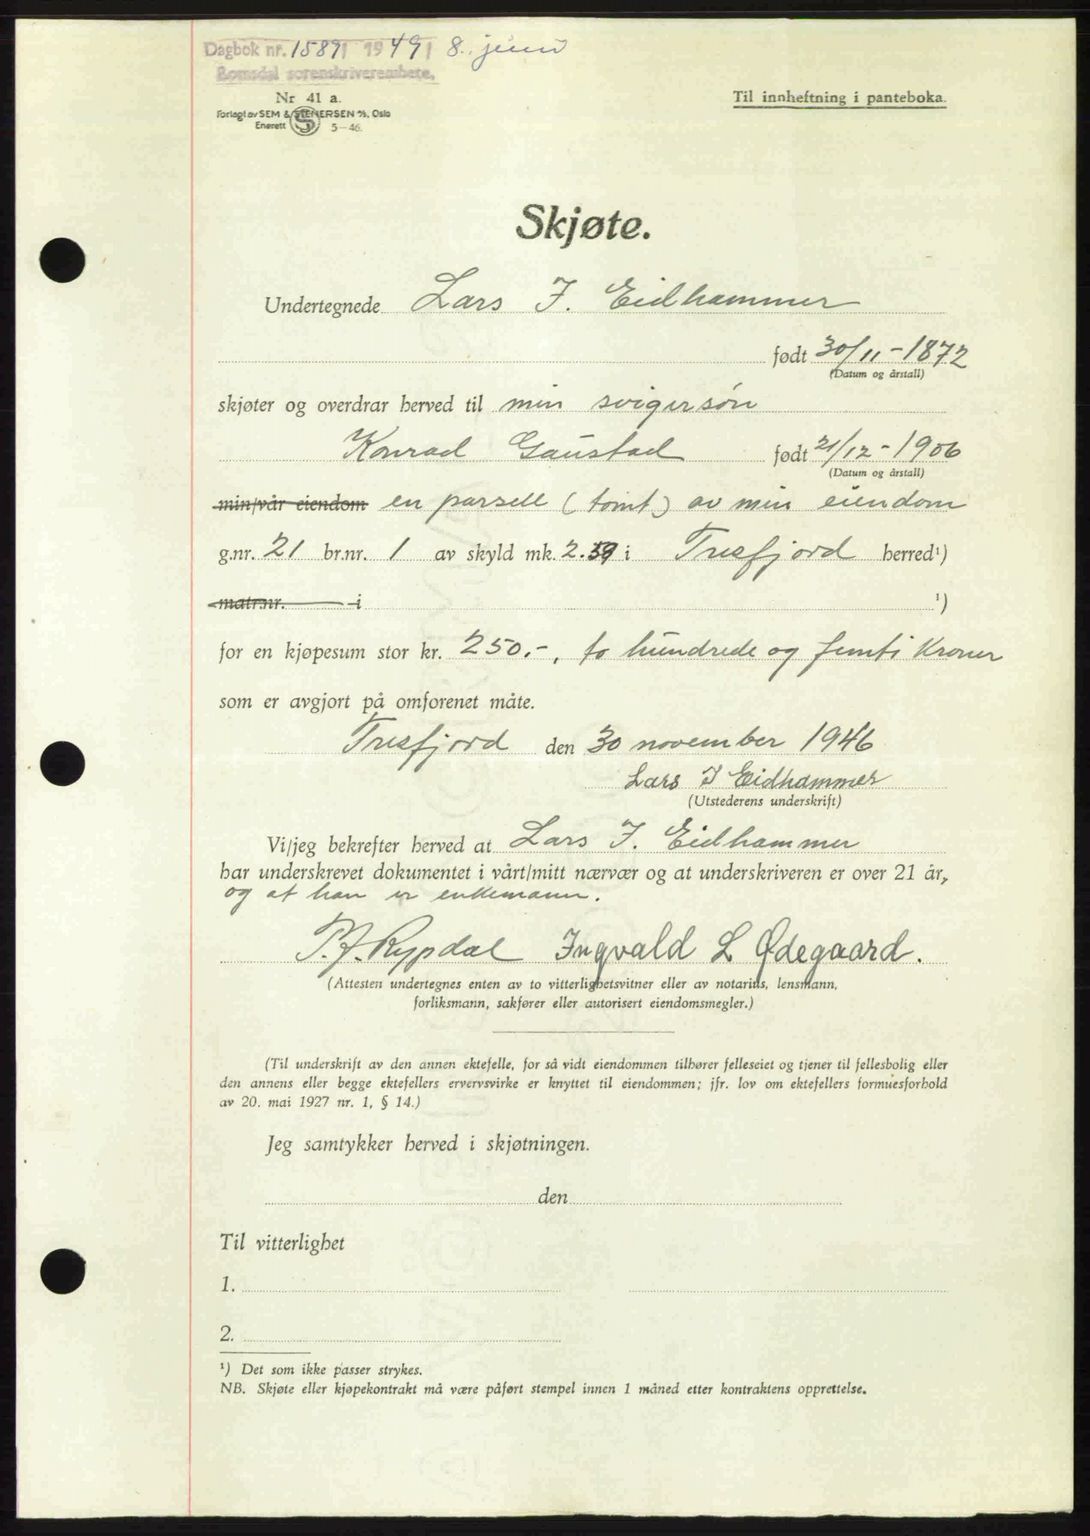 Dagbok nr. 1589/1949 8. juni
Romsdal sorenskriverembete.
Nr 41 a.
Forlagt av SEM & STENERSEN A/S, Oslo
Enerett S 5-46.
Til innheftning i panteboka.
Skjøte.
Undertegnede Lars J. Eidhammer
født 30/11-1872
(Datum og årstall)
skjøter og overdrar herved til min svigersøn
Konrad Gaustad født 21/12-1906
(Datum og årstall)
min/vår eiendom en parsell (tomt) av min eiendom
g.nr. 21 br.nr. 1 av skyld mk. 2.59 i Tresfjord herred¹)
matr.nr. i ¹)
for en kjøpesum stor kr. 250.-, to hundrede og femti Kroner
som er avgjort på omforenet måte.
Tresfjord den 30 november 1946
Lars J Eidhammer
(Utstederens underskrift)
Vi/jeg bekrefter herved at Lars J. Eidhammer
har underskrevet dokumentet i vårt/mitt nærvær og at underskriveren er over 21 år,
og at han er enkemann.
P. J. Rypdal Ingvald L Ødegaard.
(Attesten undertegnes enten av to vitterlighetsvitner eller av notarius, lensmann,
forliksmann, sakfører eller autorisert eiendomsmegler.)
(Til underskrift av den annen ektefelle, for så vidt eiendommen tilhører felleseiet og tjener til fellesbolig eller
den annens eller begge ektefellers ervervsvirke er knyttet til eiendommen; jfr. lov om ektefellers formuesforhold
av 20. mai 1927 nr. 1, § 14.)
Jeg samtykker herved i skjøtningen.
den
Til vitterlighet
1.
2.
¹) Det som ikke passer strykes.
NB. Skjøte eller kjøpekontrakt må være påført stempel innen 1 måned etter kontraktens opprettelse.